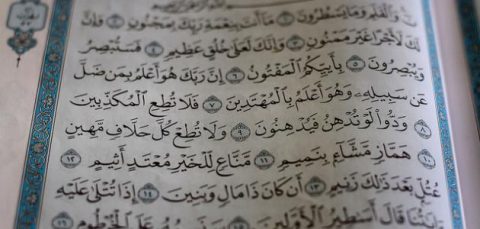 نٓ وَالْقَلَمِ وَمَا يَسْطُرُونَ ١ مَا أَنتَ بِنِعْمَةِ رَبِّكَ بِمَجْنُونٍ ٢ وَإِنَّ
لَكَ لَأَجْرًا غَيْرَ مَمْنُونٍ ٣ وَإِنَّكَ لَعَلَىٰ خُلُقٍ عَظِيمٍ ٤ فَسَتُبْصِرُ
وَيُبْصِرُونَ ٥ بِأَييِّكُمُ الْمَفْتُونُ ٦ إِنَّ رَبَّكَ هُوَ أَعْلَمُ بِمَن ضَلَّ
عَن سَبِيلِهِ وَهُوَ أَعْلَمُ بِالْمُهْتَدِينَ ٧ فَلَا تُطِعِ الْمُكَذِّبِينَ
٨ وَدُّوا لَوْ تُدْهِنُ فَيُدْهِنُونَ ٩ وَلَا تُطِعْ كُلَّ حَلَّافٍ مَّهِينٍ
١٠ هَمَّازٍ مَّشَّاءٍ بِنَمِيمٍ ١١ مَّنَّاعٍ لِّلْخَيْرِ مُعْتَدٍ أَثِيمٍ ١٢
عُتُلٍّ بَعْدَ ذَٰلِكَ زَنِيمٍ ١٣ أَن كَانَ ذَا مَالٍ وَبَنِينَ ١٤ إِذَا تُتْلَىٰ عَلَيْهِ
قَالَ أَسَاطِيرُ الْأَوَّلِينَ